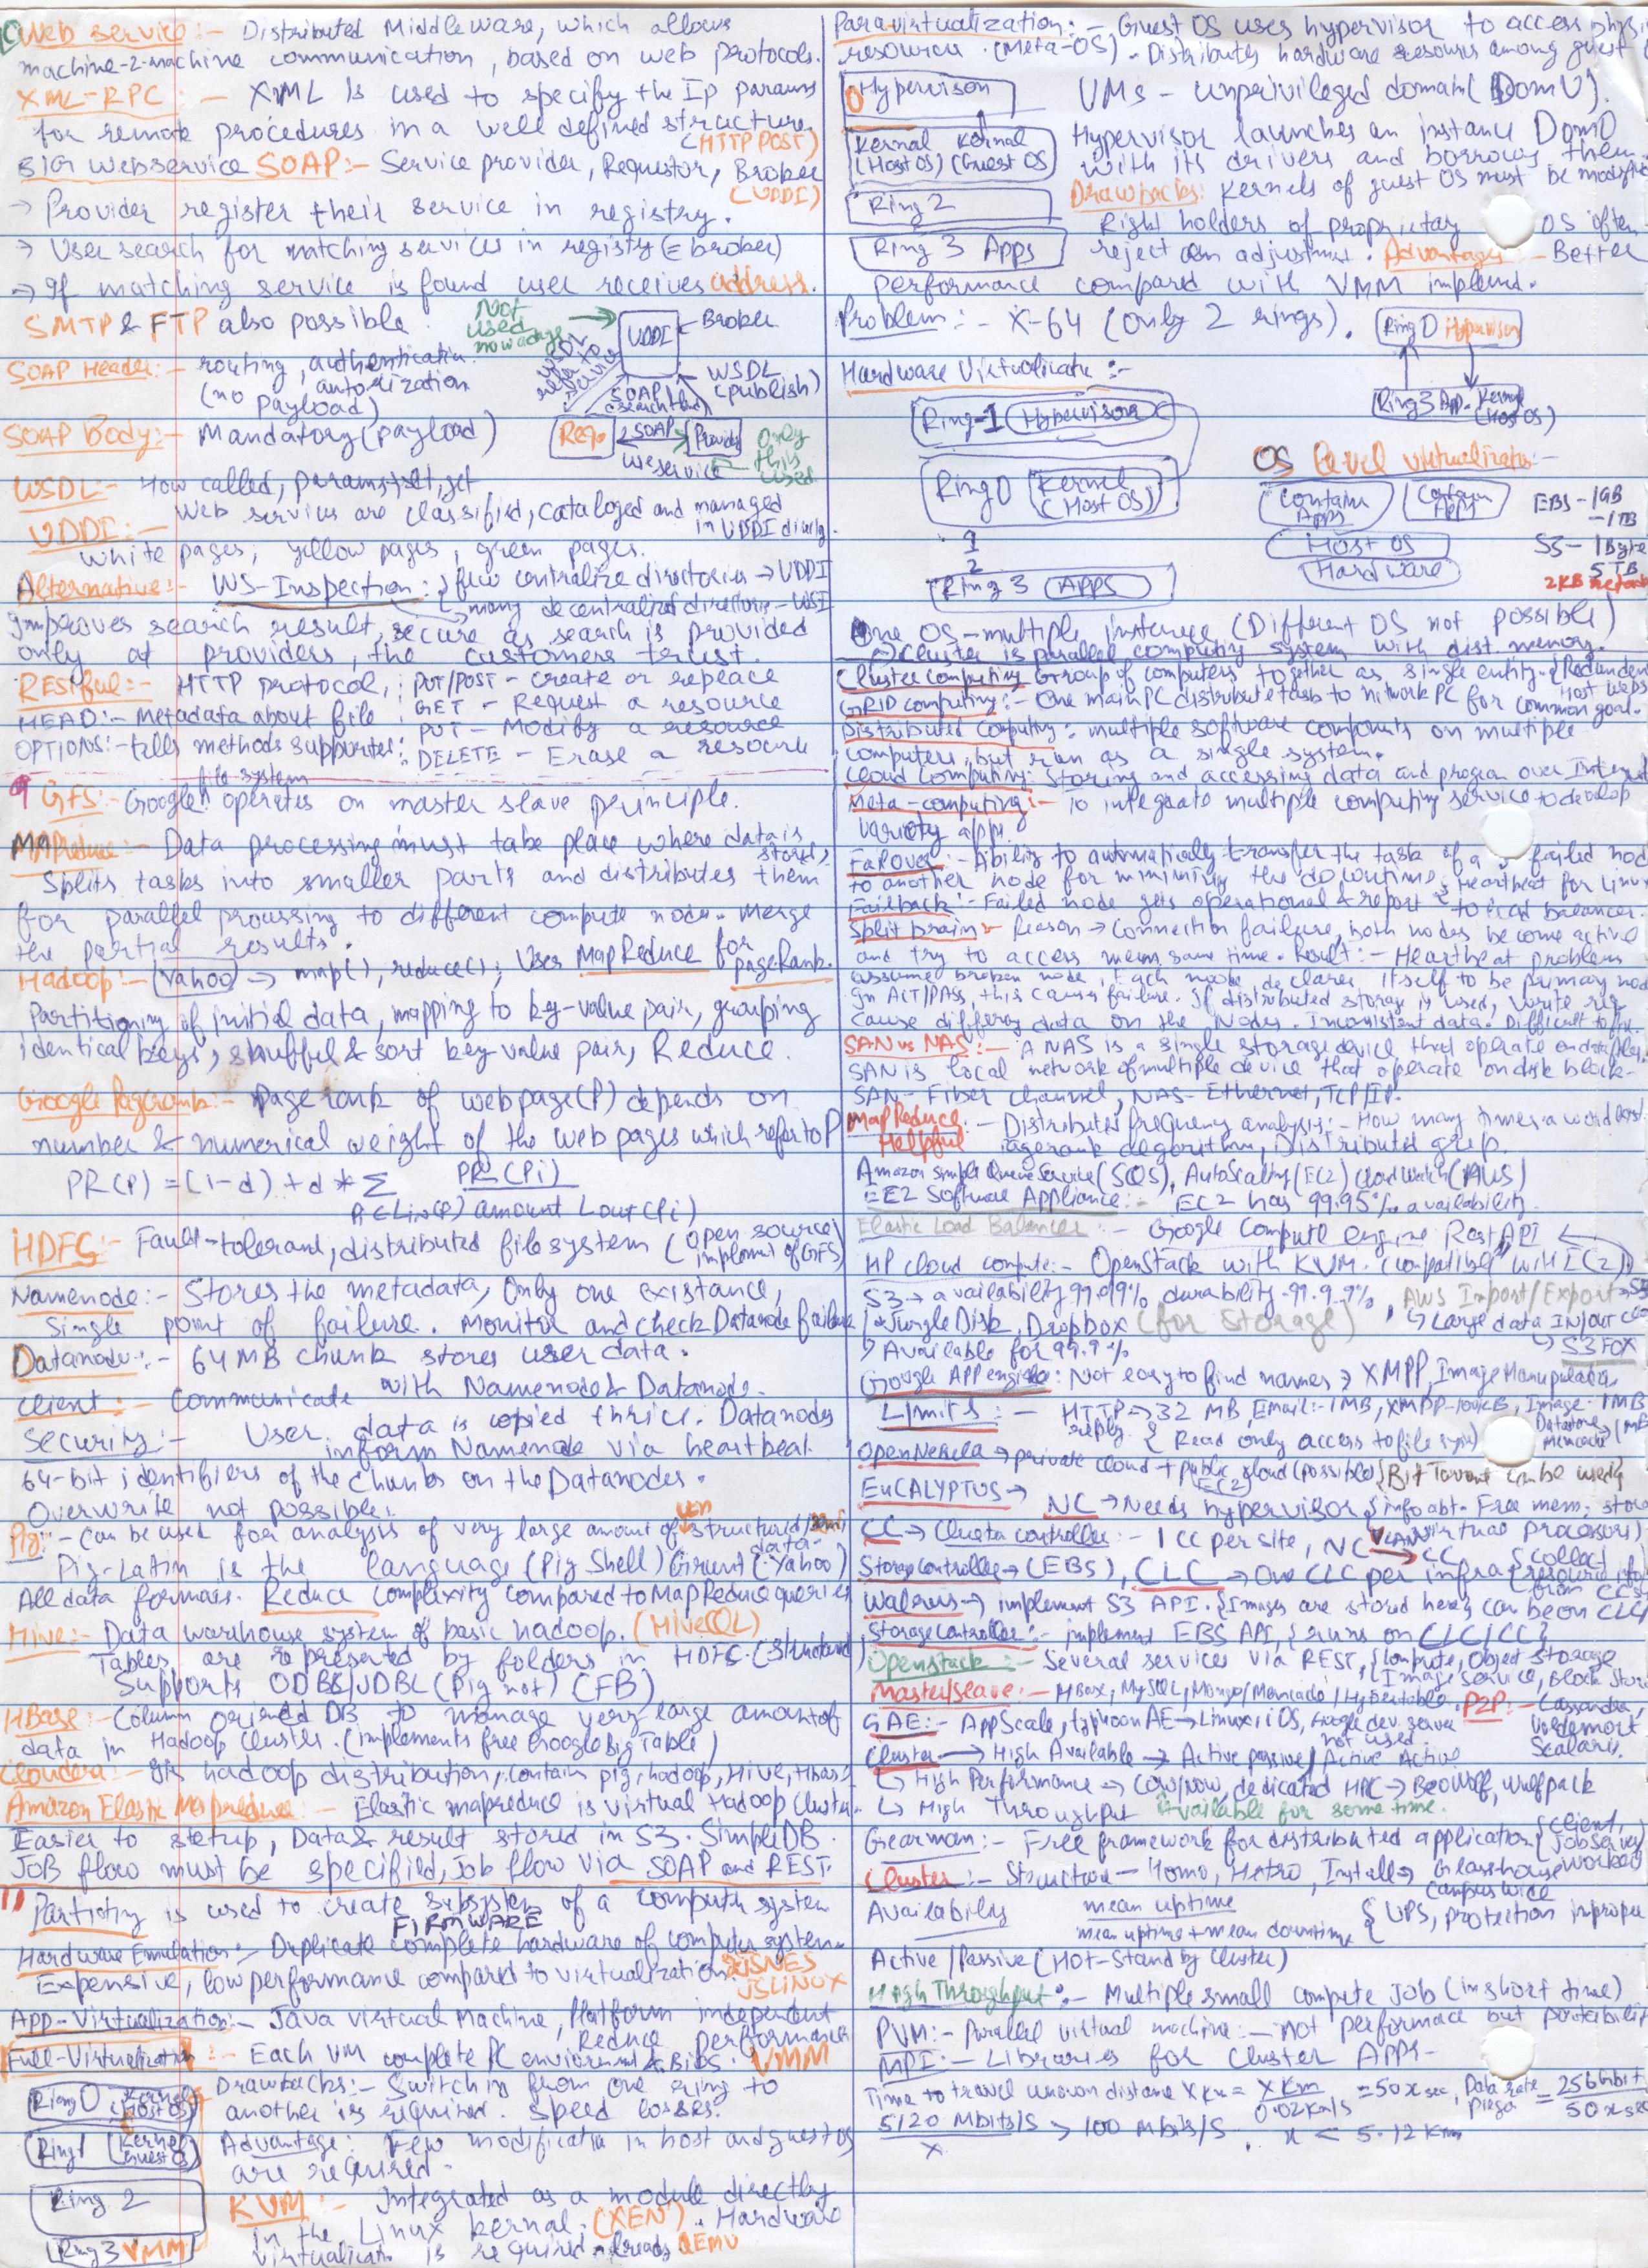 Web service:- Distributed MiddleWare, which allows
machine-2-machine communication, based on web protocols.
XML-RPC :- XML is used to specify the Ip params
for remote procedures in a well defined structure
(HTTP POST)
BIG Webservice SOAP:- Service provider, Requestor, Broker
(UDDI)
→ Provider register their service in registry.
→ User search for matching services in registry (= broker)
→ If matching service is found user receives address.
SMTP & FTP also possible.
Not used nowadays
UDDI ← Broker
WSDL (publish)
SOAP Header:- routing, authentication
(no autorization
payload)
SOAP Body:- Mandatory (payload)
Req. SOAP Provider
use service
Only this used
WSDL:- How called, params, set, get
Web services are classified, cataloged and managed
in UDDI
UDDI:-
White pages, yellow pages, green pages.
Alternative:- WS-Inspection: few centralize directories → UDDI
many decentralized directories - WSI
Improves search result, secure as search is provided
only at providers, the customers trust.
RESTful:- HTTP protocol, PUT/POST - create or replace
HEAD:- Metadata about file GET - Request a resource
PUT - Modify a resource
OPTIONS:- tells methods supported DELETE - Erase a resource
GFS:- Google file system operates on master slave principle.
MAPreduce:- Data processing must take place where data is
stored,
Splits tasks into smaller parts and distributes them
for parallel processing to different compute node. Merge
the partial results.
Hadoop:- Yahoo → map(), reduce(); Uses MapReduce for
pageRank.
Partitioning of initial data, mapping to key-value pair, grouping
identical keys, shuffel & sort key value pair, Reduce.
Google Pagerank:- Page rank of webpage(P) depends on
number & numerical weight of the web pages which refer to P
PR(P) = (1-d) + d * Σ PR(Pi)
amount Lout(Pi)
HDFS:- Fault-tolerant, distributed file system (open source
implement of GFS)
Namenode:- Stores the metadata, Only one existance,
Single point of failure. Monitor and check Datanode failure
Datanode:- 64 MB chunk stores user data.
Client:- Communicate with Namenode & Datanode.
Security:- User data is copied thrice. Datanodes
inform Namenode via heartbeat.
64-bit identifiers of the chunks on the Datanodes.
Overwrite not possible.
Pig:- Can be used for analysis of very large amount of structured/
data.
Pig-Latin is the language (Pig Shell) Grunt (Yahoo)
All data formats. Reduce complexity compared to MapReduce queries
Hive:- Data warehouse system of basic hadoop. (HiveQL)
Tables are represented by folders in HDFS. (structured)
Supports ODBC/JDBC (Pig not) (FB)
HBase:- Column oriented DB to manage very large amount of
data in Hadoop Cluster. (implements free Google BigTable)
Cloudera:- Its hadoop distribution, contain pig, hadoop, Hive, Hbase
Amazon Elastic Mapreduce:- Elastic mapreduce is virtual Hadoop Cluster.
Easier to setup, Data & result stored in S3. SimpleDB.
JOB flow must be specified, Job flow via SOAP and REST.
Particting is used to create subsystem of a computer system
FIRMWARE
Hardware Emulation:- Duplicate complete hardware of computer system
Expensive, low performance compared to virtualization. JSNES
JSLINUX
App-Virtualization:- Java virtual Machine, Platform independent
Reduce performance
Full-Virtualization:- Each VM complete PC enviorment & Bios. VMM
Ring 0 Kernel (Host OS)
Drawbacks:- Switching from one ring to
another is required. Speed losses.
Ring 1 Kernel Guest OS
Advantage: Few modification in host and guest OS
are required.
Ring 2
Ring 3 VMM
KVM:- Integrated as a module directly
in the Linux kernal. (XEN). Hardware
virtualization is required already QEMU
Paravirtualization:- Guest OS uses hypervisor to access
resource. (Meta-OS). Distributes hardware resources among guest
0 Hypervisor
VMs - unprivileged domain (DomU).
Kernal (Host OS) Kernal (Guest OS
Hypervisor launches an instance Dom0
with its drivers and borrows them.
Ring 2
Drawbacks: Kernels of guest OS must be
Right holders of proprietary OS often
Ring 3 Apps
reject an adjustment. Advantages:- Better
performance compared with VMM implemn.
Problem:- X-64 (Only 2 rings).
Ring 0 Hypervisor
Ring 3 App. Kernel (Host OS)
Hardware Virtualization:-
Ring-1 Hypervisor
Ring 0 Kernel (Host OS)
1
2
Ring 3 APPS
OS level virtualization:-
Contain Apps Contain Apps
Host OS
Hardware
EBS - 1GB
- 1TB
S3 - 1Byte
5 TB
2KB
One OS - multiple instance (Different OS not possible)
→ Cluster is parallel computing system with dist. memory.
Cluster computing: Group of computers together as single entity.
GRID computing:- One main PC distribute task to network PC for common goal.
Distributed Computing: multiple software componts on multiple
computers, but run as a single system.
Cloud Computing: Storing and accessing data and program over Internet
Meta-computing:- To integrate multiple computing service to develop
variety apps
FailOver:- Ability to automatically transfer the task of a failed node
to another node for minimizing the downtime. Heartbeat for Linux
Failback:- Failed node gets operational & report to load balancer.
Split brain:- Reason → Connection failure, both nodes become active
and try to access mem. same time. Result:- Heartbeat problem
assume broken node, Each node declares itself to be primary node
In ACT/PASS, this causes failure. If distributed storage is used, write req
cause differing data on the Nodes. Inconsistent data. Difficult to fix.
SAN vs NAS:- A NAS is a single storage device that operate on data files.
SAN is local network of multiple device that operate on disk block.
SAN - Fiber channel, NAS - Ethernet, TCP/IP.
MapReduce Helpful :- Distributed frequency analysis:- How many times a word
pagerank algorithm, Distributed grep.
Amazon Simple Queue Service (SQS), AutoScaling (EC2) Cloud Watch (AWS)
Software Appliance:- EC2 has 99.95% availability.
Elastic Load Balancer:- Google Compute engine Rest API
HP cloud compute:- OpenStack with KVM. (Compatible with EC2)
S3 → availability 99.99% durability - 99.9.9% AWS Import/Export → S3
Jungle Disk, Dropbox (for Storage) Large data IN/out
→ Available for 99.9% → S3FOX
Google APP engine: Not easy to find names → XMPP, Image Manupulation
Limits:- HTTP → 32 MB, Email:- 1MB, XMPP - 100KB, Image - 1MB
reply. Read only access to file sys
OpenNebula → private cloud + public cloud (possible) (EC2) Bit Torrent can be used
EUCALYPTUS → NC → Needs hypervisor info abt. Free mem.
CC → Cluster controller:- 1 CC per site, NC VLAN CC
Storage Controller → (EBS), CLC → One CLC per infra
Walrus → implement S3 API. Images are stored here can be on CLC
Storage Controller:- implement EBS API, runs on CLC/CC
Openstack:- Several services via REST, Compute, Object Storage
Image service, Block
Master/Slave:- HBase, MySQL, Hypertable. P2P:- Cassandra,
Voldemort
Scalaris.
GAE:- AppScale, typhoonAE → Linux, iOS, Google dev. server
not used.
Cluster → High Available → Active passive/Active Active
→ High Performance → COW/NOW, dedicated HPC → Beowolf, Wulfpack
→ High Throughput Available for some time.
Gearman:- Free framework for distributed application Client,
Job Server
Worker
Cluster:- Structure - Homo, Hetro, Install → Glasshouse
Campus wide
Availability mean uptime
mean uptime + mean downtime
UPS, protection
Active/Passive (HOT-Stand by Cluster)
High Throughput:- Multiple small compute Job (in short time)
PVM:- Parallel virtual machine:- not performace but
MPI:- Libraries for Cluster Apps-
Time to travel unown distance X km = X Km / 0.02 Km/s = 50 x sec, Data rate = 256 Mbit / 50 x sec
5120 Mbits/S / x > 100 Mbits/S. x < 5.12 Km